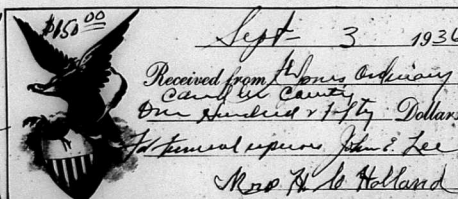 $150 00
Sept 3 1936
Received from Jones Ordinary
Camden County
One Hundred & Fifty Dollars
For funeral expenses John E. Lee
Mrs H. C Holland